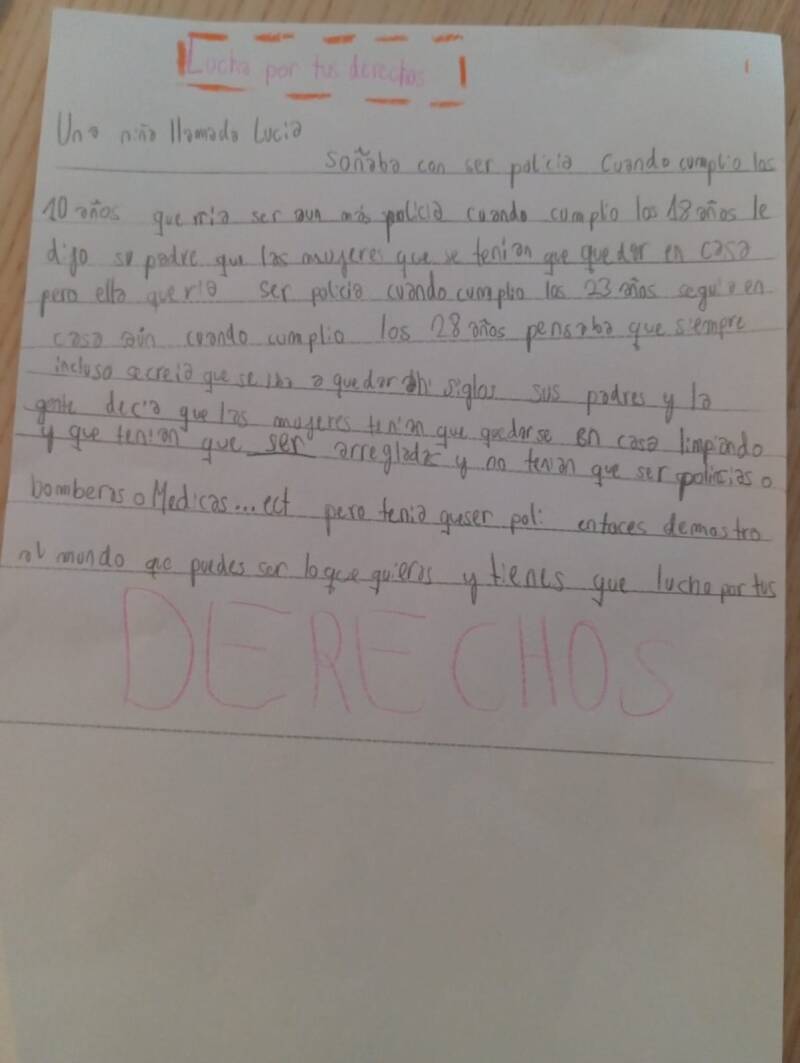 Lucha por tus derechos
Una niña llamada Lucia
soñaba con ser policia Cuando cumplio los
10 años queria ser aun más policia cuando cumplio los 18 años le
dijo su padre que las mujeres que se tenian que quedar en casa
pero ella queria ser policia cuando cumplio los 23 años seguia en
casa aún cuando cumplio los 28 años pensaba que siempre
incluso secreia que se iba a quedar ahi siglos sus padres y la
gente decia que las mujeres tenian que quedarse en casa limpiando
y que tenian que ser arregladas y no tenian que ser policias o
bomberas o Medicas...ect pero tenia queser poli entoces demostro
al mundo que puedes ser loque quieras y tienes que lucha por tus
DERECHOS